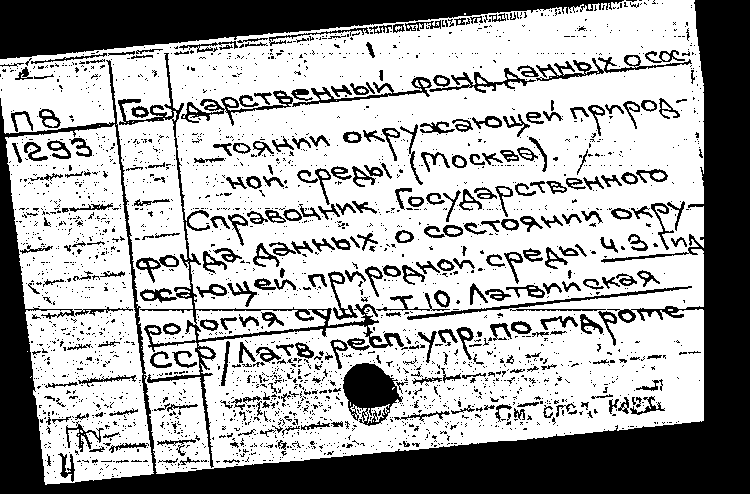 П8.
1293
Государственный фонд данных о сос-
тоянии окружающей природ-
ной среды. (Москва).
Справочник Государственного
фонда данных о состоянии окру-
жающей природной среды. Ч.3. Гид-
рология суши. Т.10. Латвийская
ССР / Латв. респ. упр. по гидроме
См. след.